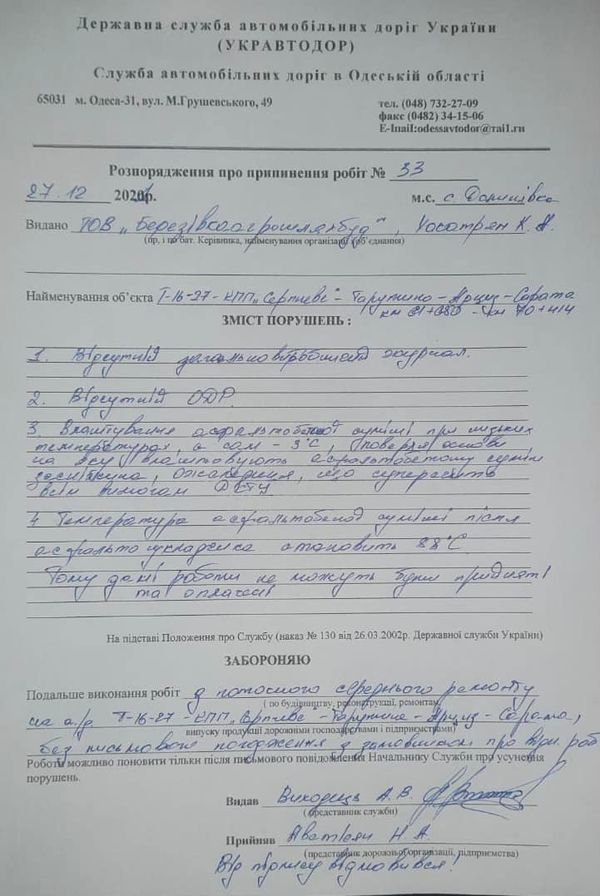 Державна служба автомобільних доріг України
(УКРАВТОДОР)
Служба автомобільних доріг в Одеській області
65031 м. Одеса-31, вул. М.Грушевського, 49
тел. (048) 732-27-09
факс (0482) 34-15-06
E-Inail:odessavtodor@tai1.ru
Розпорядження про припинення робіт № 33
27.12 2021р.
м.с. с. Данилівка
Видано ТОВ „Березівкаагрошляхбуд",
(пр, і по бат. Керівника, найменування організації (об'єднання)
Найменування об'єкта Т-16-27 - КПП „Серпневе" - Тарутино - Арциз - Сарата
км 61+680 - км 70+414
ЗМІСТ ПОРУШЕНЬ :
1. Відсутній загальновиробничий журнал.
2. Відсутній ОДР.
3. Влаштування асфальтобетонної суміші при низьких
температурах, а сам - 3°С, поверхня основи
на яку влаштовують асфальтобетонну суміш
засніжена, що суперечить
всім вимогам ДСТУ.
4. Температура асфальтобетоної суміші після
асфальтоукладчика становить 88°С.
Тому дані роботи не можуть бути прийняті
та оплачені
На підставі Положення про Службу (наказ № 130 від 26.03.2002р. Державної служби України)
ЗАБОРОНЯЮ
Подальше виконання робіт з поточного середнього ремонту
( по будівництву, реконструкції, ремонтам,
на а/д Т-16-27 - КПП „Серпневе - Тарутине - Арциз - Сарата,
випуску продукції дорожніми господарствами і підприємствами)
без письмового погодження з замовником про роб
Роботи можливо поновити тільки після письмового повідомлення Начальнику Служби про усунення
порушень.
Видав А. В.
(представник служби)
Прийняв Н. А.
(представник дорожньої організації, підприємства)
Від підпису відмовився!